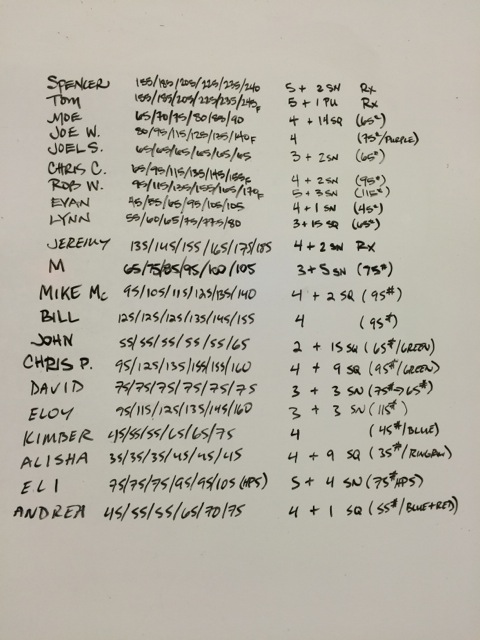 SPENCER 185/195/205/225/235/240 5 + 2 SN Rx
TOM 185/195/205/225/235/245F 5 + 1 PU Rx
MOE 65/70/75/80/85/90 4 + 14 SQ (65#)
JOE W. 80/95/115/125/135/140F 4 (75#/PURPLE)
JOEL S. 65/65/65/65/65/65 3 + 2 SN (65#)
CHRIS C. 65/95/115/135/145/155F 4 + 2 SN (95#)
ROB W. 95/115/135/155/165/170F 5 + 3 SN (115#)
EVAN 45/55/65/95/105/105 4 + 1 SN (45#)
LYNN 55/60/65/75/77.5/80 3 + 15 SQ (65#)
JEREMY 135/145/155/165/175/185 4 + 2 SN Rx
M 65/75/85/95/100/105 3 + 5 SN (75#)
MIKE Mc 95/105/115/125/135/140 4 + 2 SQ (95#)
BILL 125/125/125/135/145/155 4 (95#)
JOHN 55/55/55/55/55/65 2 + 15 SQ (65#/GREEN)
CHRIS P. 95/125/135/155/155/160 4 + 9 SQ (95#/GREEN)
DAVID 75/75/75/75/75/75 3 + 3 SN (75#→65#)
ELOY 95/115/125/135/145/160 3 + 3 SN (115#)
KIMBER 45/55/55/65/65/75 4 (45#/BLUE)
ALISHA 35/35/35/45/45/45 4 + 9 SQ (35#/RINGROW)
ELI 75/75/75/95/95/105 (HPS) 5 + 4 SN (75#HPS)
ANDREA 45/55/55/65/70/75 4 + 1 SQ (55#/BLUE+RED)